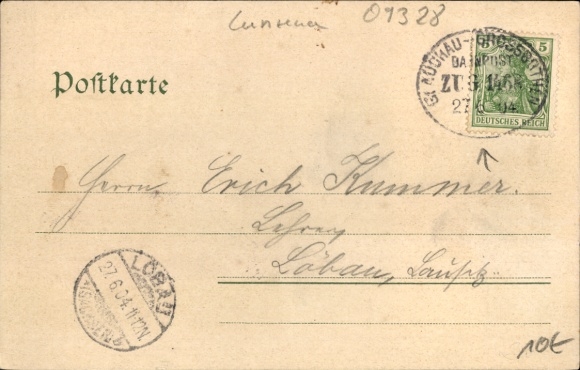 09328
Postkarte
GLAUCHAU-GROSSBOTHEN
BAHNPOST
ZUG 1466
27 6 04
5
DEUTSCHES REICH
Herrn Erich Kummer.
Lehrer,
Löbau, Lausitz
LÖBAU
27.6.04.11-12V.
10€